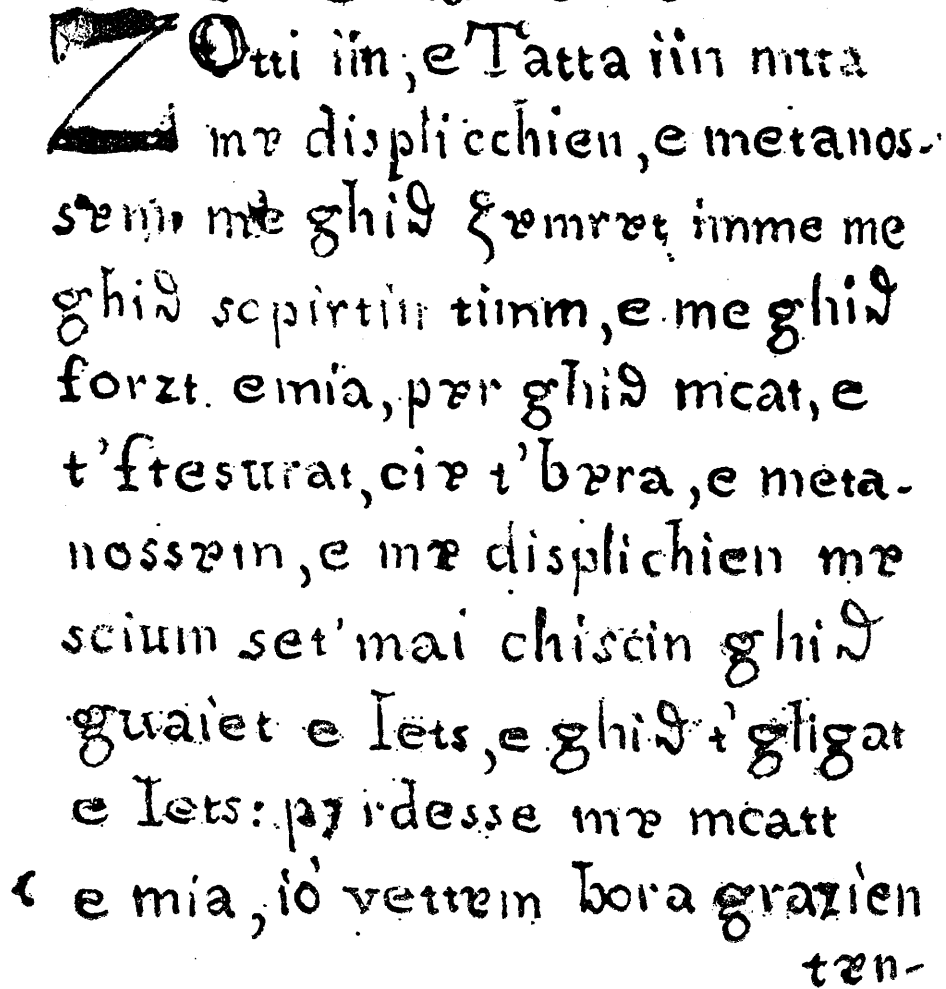 ZOtti iin, e Tatta iin nuta
mɐ displicchien, e metanos-
sɐm me ghiđ ξɐmrɐt iimme me
ghiđ scpirtiit tiimm, e me ghiđ
forzt emia, pɐr ghiđ mcat, e
t'ftesurat, ciɐ t'bɐra, e meta-
nossɐm, e mɐ displichien mɐ
scium set'mai chiscin ghiđ
guaiet e Iets, e ghiđ t'gligat
e Iets: pɐ rdesse mɐ mcatt
e mia, iò vettɐm bora grazien
tɐn-